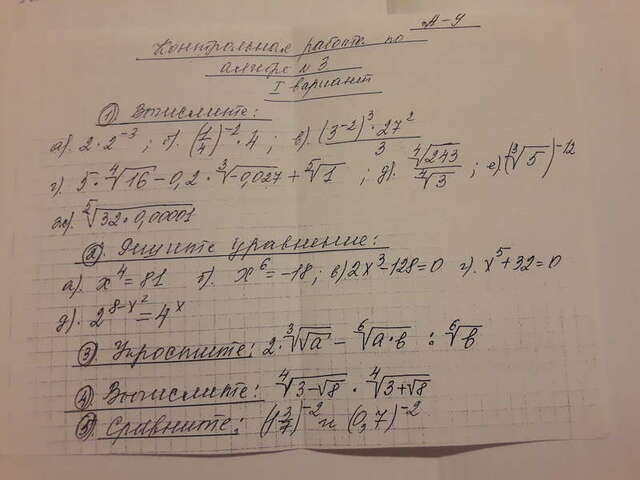 А-9
Контрольная работа по
алгебре №3
I вариант
① Вычислите:
а). 2·2⁻³; б). (1/4)⁻²·4; в) (3⁻²)³·27² / 3
г). 5·⁴√16 - 0,2·³√-0,027 + ⁵√1; д). ⁴√243 / ⁴√3; е) (¹³√5)⁻¹²
ж). ⁵√32·0,00001
② Решите уравнение:
а). x⁴ = 81 б). x⁶ = -18; в) 2x³ - 128 = 0 г). x⁵ + 32 = 0
д). 2^(8x²) = 4ˣ
③ Упростите: 2·³√√a - ⁶√a·b : ⁶√b
④ Вычислите: ⁴√3-√8 · ⁴√3+√8
⑤ Сравните: (1,3)⁻² и (0,7)⁻²